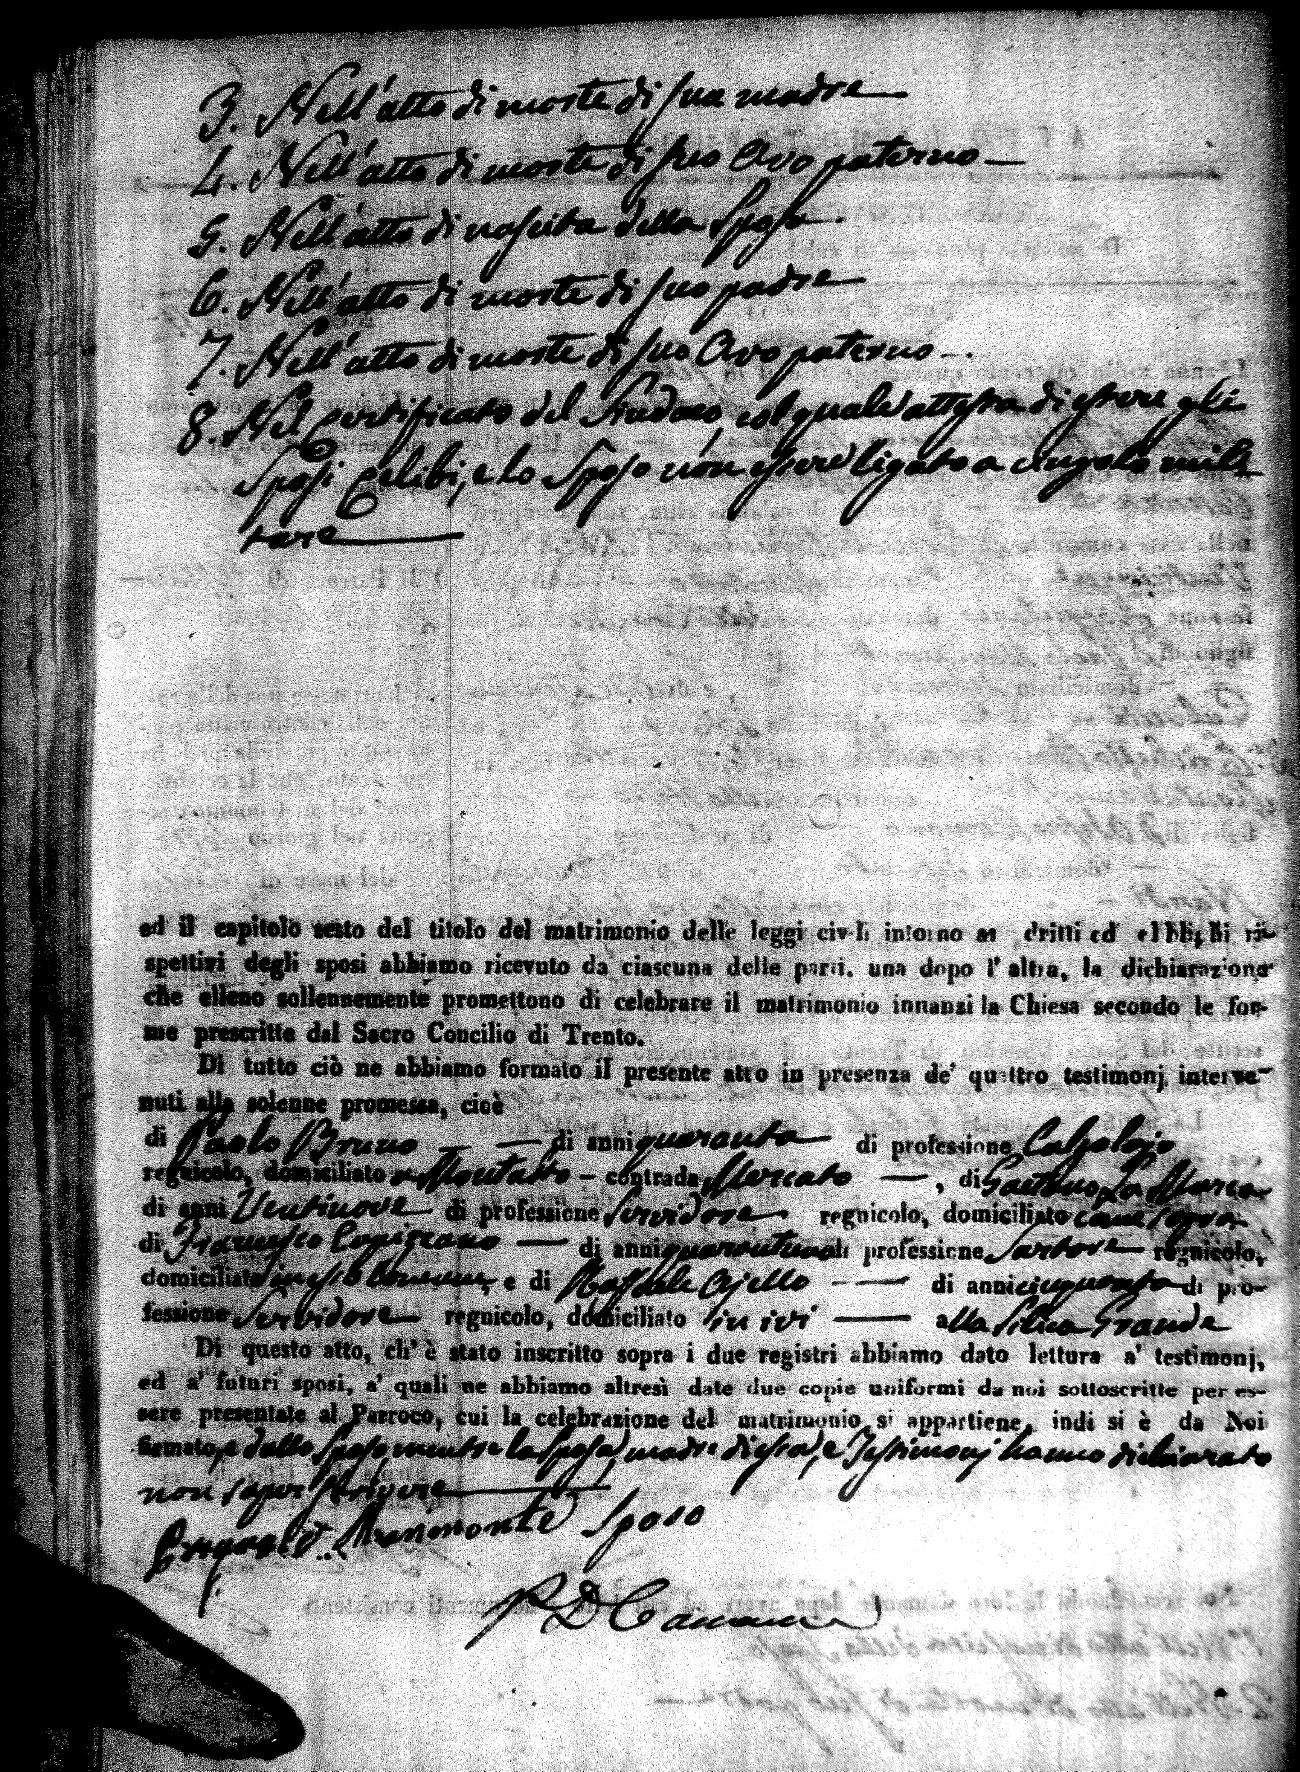 3. Nell'atto di morte di sua madre
4. Nell'atto di morte di suo Avo paterno
5. Nell'atto di nascita della Sposa.
6. Nell'atto di morte di suo padre
7. Nell'atto di morte di suo Avo paterno
8. Nel certificato del Sindaco, col quale attesta di essere gli
Sposi celibi, e lo Sposo non essere ligato a cingolo mili
tare
ed il capitolo sesto del titolo del matrimonio delle leggi civili intorno ai dritti ed obblighi ri-
spettivi degli sposi abbiamo ricevuto da ciascuna delle parti, una dopo l'altra, la dichiarazione
che elleno sollennemente promettono di celebrare il matrimonio innanzi la Chiesa secondo le for-
me prescritte dal Sacro Concilio di Trento.
Di tutto ciò ne abbiamo formato il presente atto in presenza de' quattro testimonj interve-
nuti alla solenne promessa, cioè
di Paolo Bruno di anni quaranta di professione Calzolajo
regnicolo, domiciliato contrada Mercato, di Gaetano La Marca
di anni Ventinove di professione Servidore regnicolo, domiciliato come sopra
di Francesco di anni quarantuno di professione Sartore regnicolo,
domiciliato in esso Comune, e di Raffaele Ajello di anni cinquanta di pro-
fessione Servidore regnicolo, domiciliato in ivi alla Selva Grande
Di questo atto, ch'è stato inscritto sopra i due registri abbiamo dato lettura a' testimonj,
ed a' futuri sposi, a' quali ne abbiamo altresì date due copie uniformi da noi sottoscritte per es-
sere presentate al Parroco, cui la celebrazione del matrimonio si appartiene, indi si è da Noi
firmato, e dallo Sposo, mentre la Sposa, madre di essa, e Testimonj hanno dichiarato
non saper scrivere
Sposo